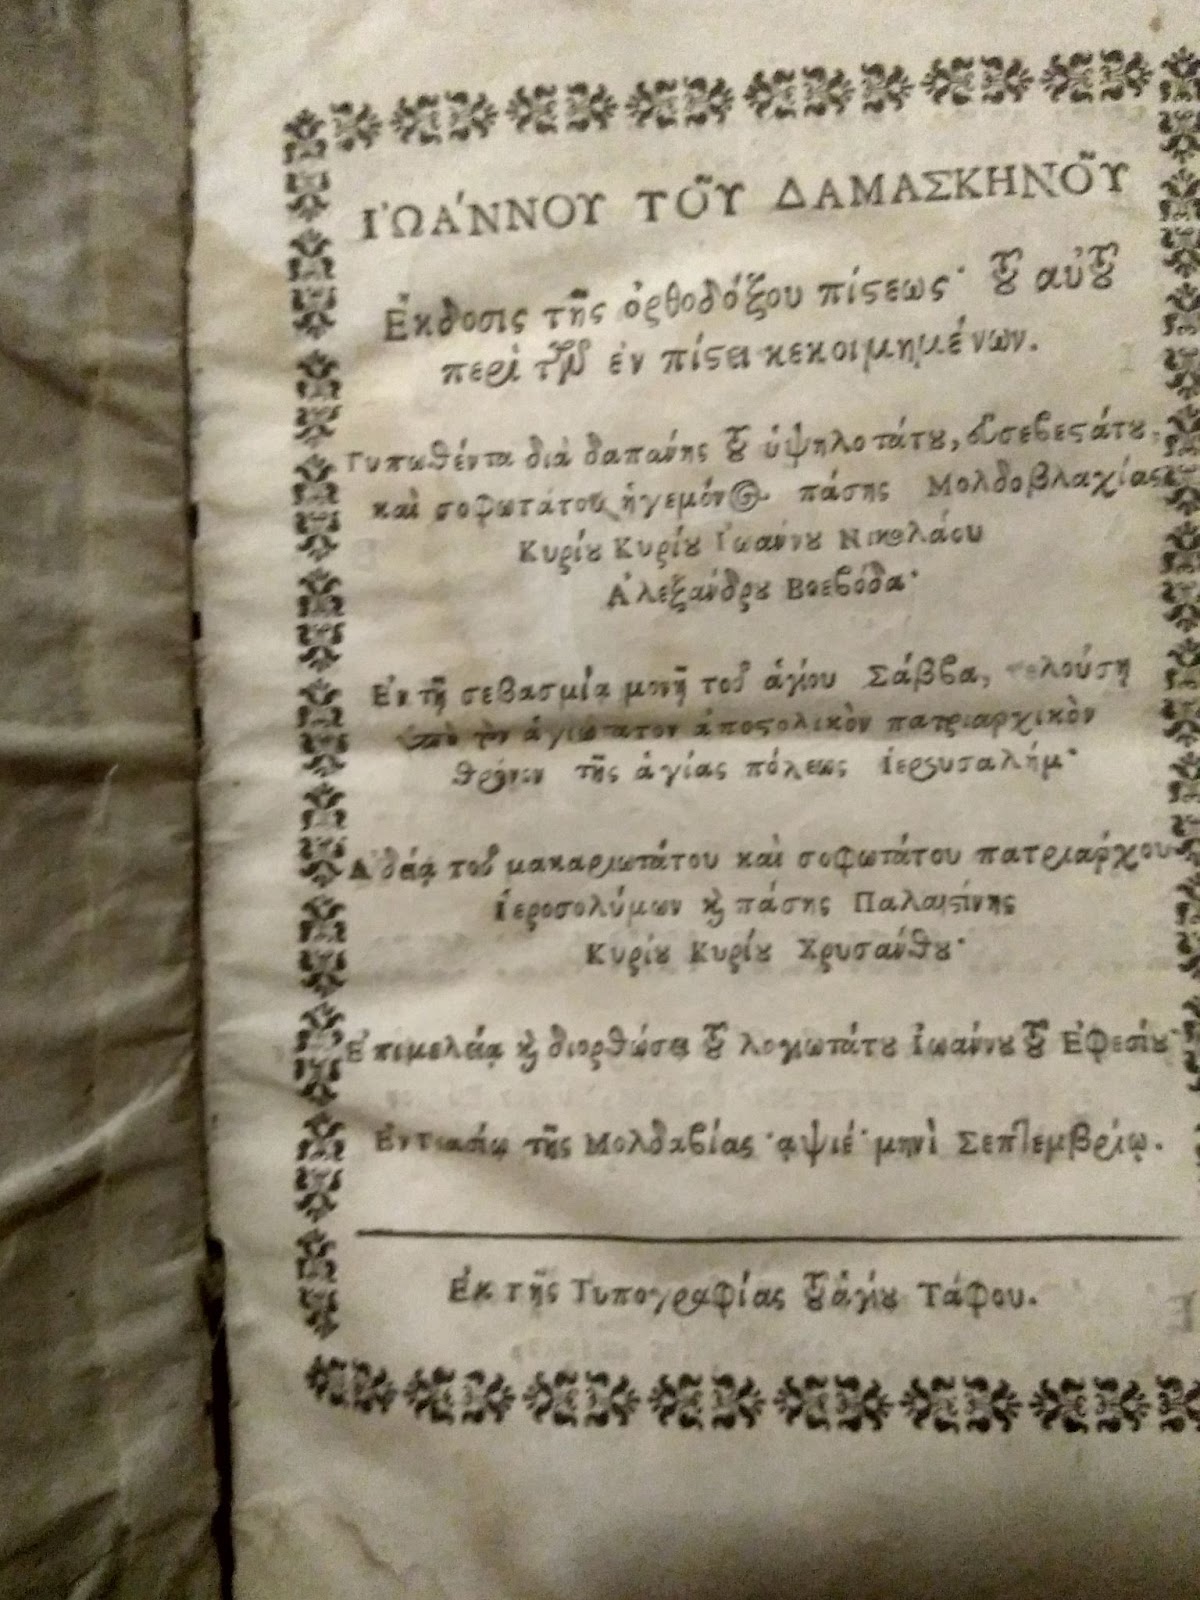 ἸΩΆΝΝΟΥ ΤΟῦ ΔΑΜΑΣΚΗΝΟῦ
Ἔκδοσις τῆς ὀρθοδόξου πίϛεως· τȣ͂ αὐτȣ͂
περὶ τῶν ἐν πίϛει κεκοιμημένων.
Τυπωθέντα διὰ δαπάνης τȣ͂ ὑψηλοτάτȣ, εὐσεβεϛάτȣ,
καὶ σοφωτάτου ἡγεμόνος πάσης Μολδοβλαχίας
Κυρίȣ Κυρίȣ Ἰωάννȣ Νικολάου
Ἀλεξάνδρȣ Βοεβόδα·
Ἐν τῇ σεβασμίᾳ μονῇ τοῦ ἁγίου Σάββα, τελούσῃ
ὑπὸ τὸν ἁγιώτατον ἀποϛολικὸν πατριαρχικὸν
θρόνον τῆς ἁγίας πόλεως Ἱερουσαλήμ·
Ἀδείᾳ τοῦ μακαριωτάτου καὶ σοφωτάτου πατριάρχου
Ἱεροσολύμων ϗ πάσης Παλαιϛίνης
Κυρίȣ Κυρίȣ Χρυσάνθȣ·
Ἐπιμελείᾳ ϗ διορθώσει τȣ͂ λογιωτάτȣ Ἰωάννȣ τȣ͂ Ἐφεσίȣ·
Ἐν Γιασίῳ τῆς Μολδαβίας· ͵αψιέ· μηνὶ Σεπτεμβρίῳ.
Ἐκ τῆς Τυπογραφίας τȣ͂ ἁγίȣ Τάφου.